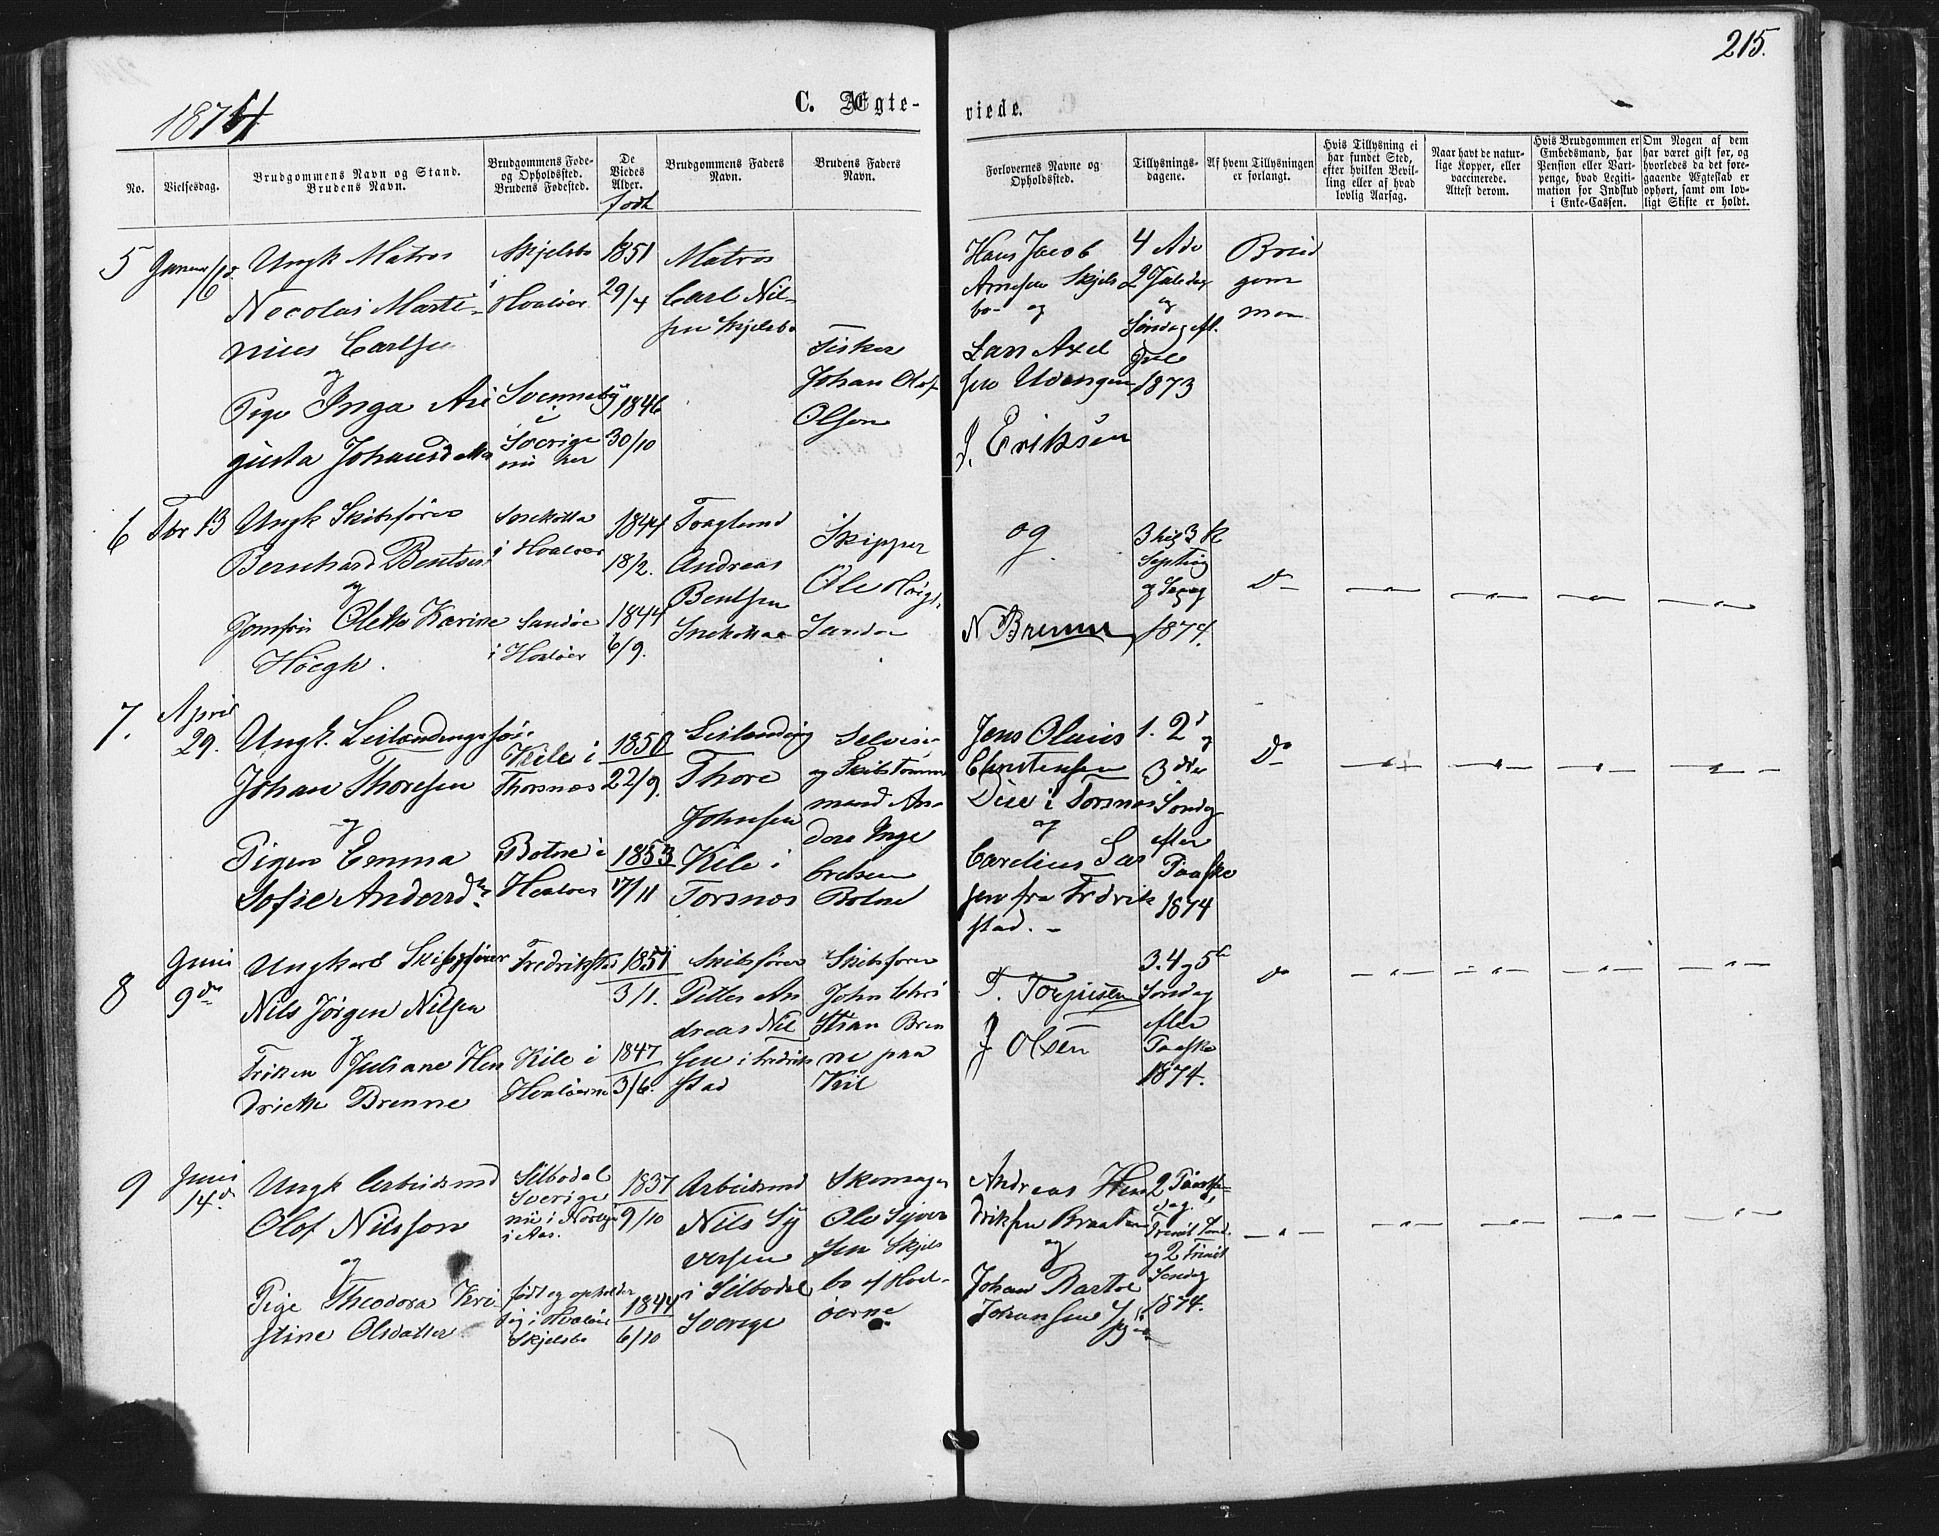 215.
1874
C. Ægte-
viede.
No.
Vielsesdag.
Brudgommens Navn og Stand.
Brudens Navn.
Brudgommens Føde-
og Opholdssted.
Brudens Fødested.
De
Viedes
Alder.
født
Brudgommens Faders
Navn.
Brudens Faders
Navn.
Forlovernes Navne og
Opholdssted.
Tillysnings-
dagene.
Af hvem Tillysningen
er forlangt.
Hvis Tillysning ei
har fundet Sted,
efter hvilken Bevil-
ling eller af hvad
lovlig Aarsag.
Naar havt de natur-
lige Kopper, eller
vaccinerede.
Attest derom.
Hvis Brudgommen er
Embedsmand, har
Pension eller Vart-
penge, hvad Legiti-
mation for Indskud
i Enke-Cassen.
Om Nogen af dem
har været gift før, og
hvorledes da det fore-
gaaende Ægteskab er
ophørt, samt om lov-
ligt Skifte er holdt.
5
Ungk Matros
Necolai Marti-
nius Carlsen
og
Pige Inga Au
gusta Johansd
Skjelsbo
i
Hvaløer
Svenneby
i
Sverige
nu her
1851
29/4
1846
30/10
Matros
Carl Nil-
sen Skjelsbo
Fisker
Johan Olof
Olsen
Hans Jacob
Arnesen Skjels
bo og
Lars Axel
sen Udengen
J. Eriksen
4 Adv
2 Juledag
og
Søndag eft.
Jule
1873
Brud
gom
men
6
Fbr 13
Ungk Skibsfører
Bernhard Bentsen
og
Jomfru Oletta Karine
Höegh.
i Hvaløer
Sandøe
i Hvaløer
1844
18/2.
1844
6/9.
Andreas
Bentsen
Skipper
Ole Höigh
Sandøe
og
N Brenne
og
1874.
Do
7.
April
29.
Ungk. Leilændings søn
Johan Thoresen
og
Pigen Emma
Sofie Andersdtr
Kile i
Thorsnæs
Botne i
Hvaløer
1850
22/9.
1853
17/11
Leilænding
Thore
Johnsen
Kile i
Torsnæs
Selveier
og Skibstømmer
mand An-
ders Inge
bretsen
Botne
Jens Oluis
Christensen
Dise i Torsnæs
og
Carelius Las
sen fra Fredrik
stad. -
1. 2d og
3die
Søndag
efter
Paaske
1874
Do
8
Juni
9de
Ungkarl Skibsfører
Nils Jørgen Nilsen
og
Frøken Juliane Hen
driette Brenne
Fredrikstad
Kile i
Hvaløerne
1851
3/1.
1847
3/6.
Skibsfører
Petter An
dreas Nil
sen i Fredrik
stad
Skibsfører
John Chri
stian Bren
ne paa
Kil
T. Torjusen
J Olsen
3. 4 og 5te
Søndag
efter
Paaske
1874.
Do
9
Juni
14de
Ungk Arbeidsmd
Olof Nilsson
og
Pige Theodora Kri
stine Olsdatter
Silbodal
Sverige
nu i Norby
i Aas.
født og opholder
sig i Hvaløer
Skjelsbo
1837
9/10
1844
6/10
Arbeidsmd
Nils Sy
versen
i Silbodal
Sverige
Skomager
Ole Syver
sen Skjels
bo af Hval-
øerne
Andreas Hen
driksen Braaten
og
Johan Bartol
Johansen
2 Paaske-
dag.
Trinit Sønd.
og 2 Trinit
Søndag
1874.